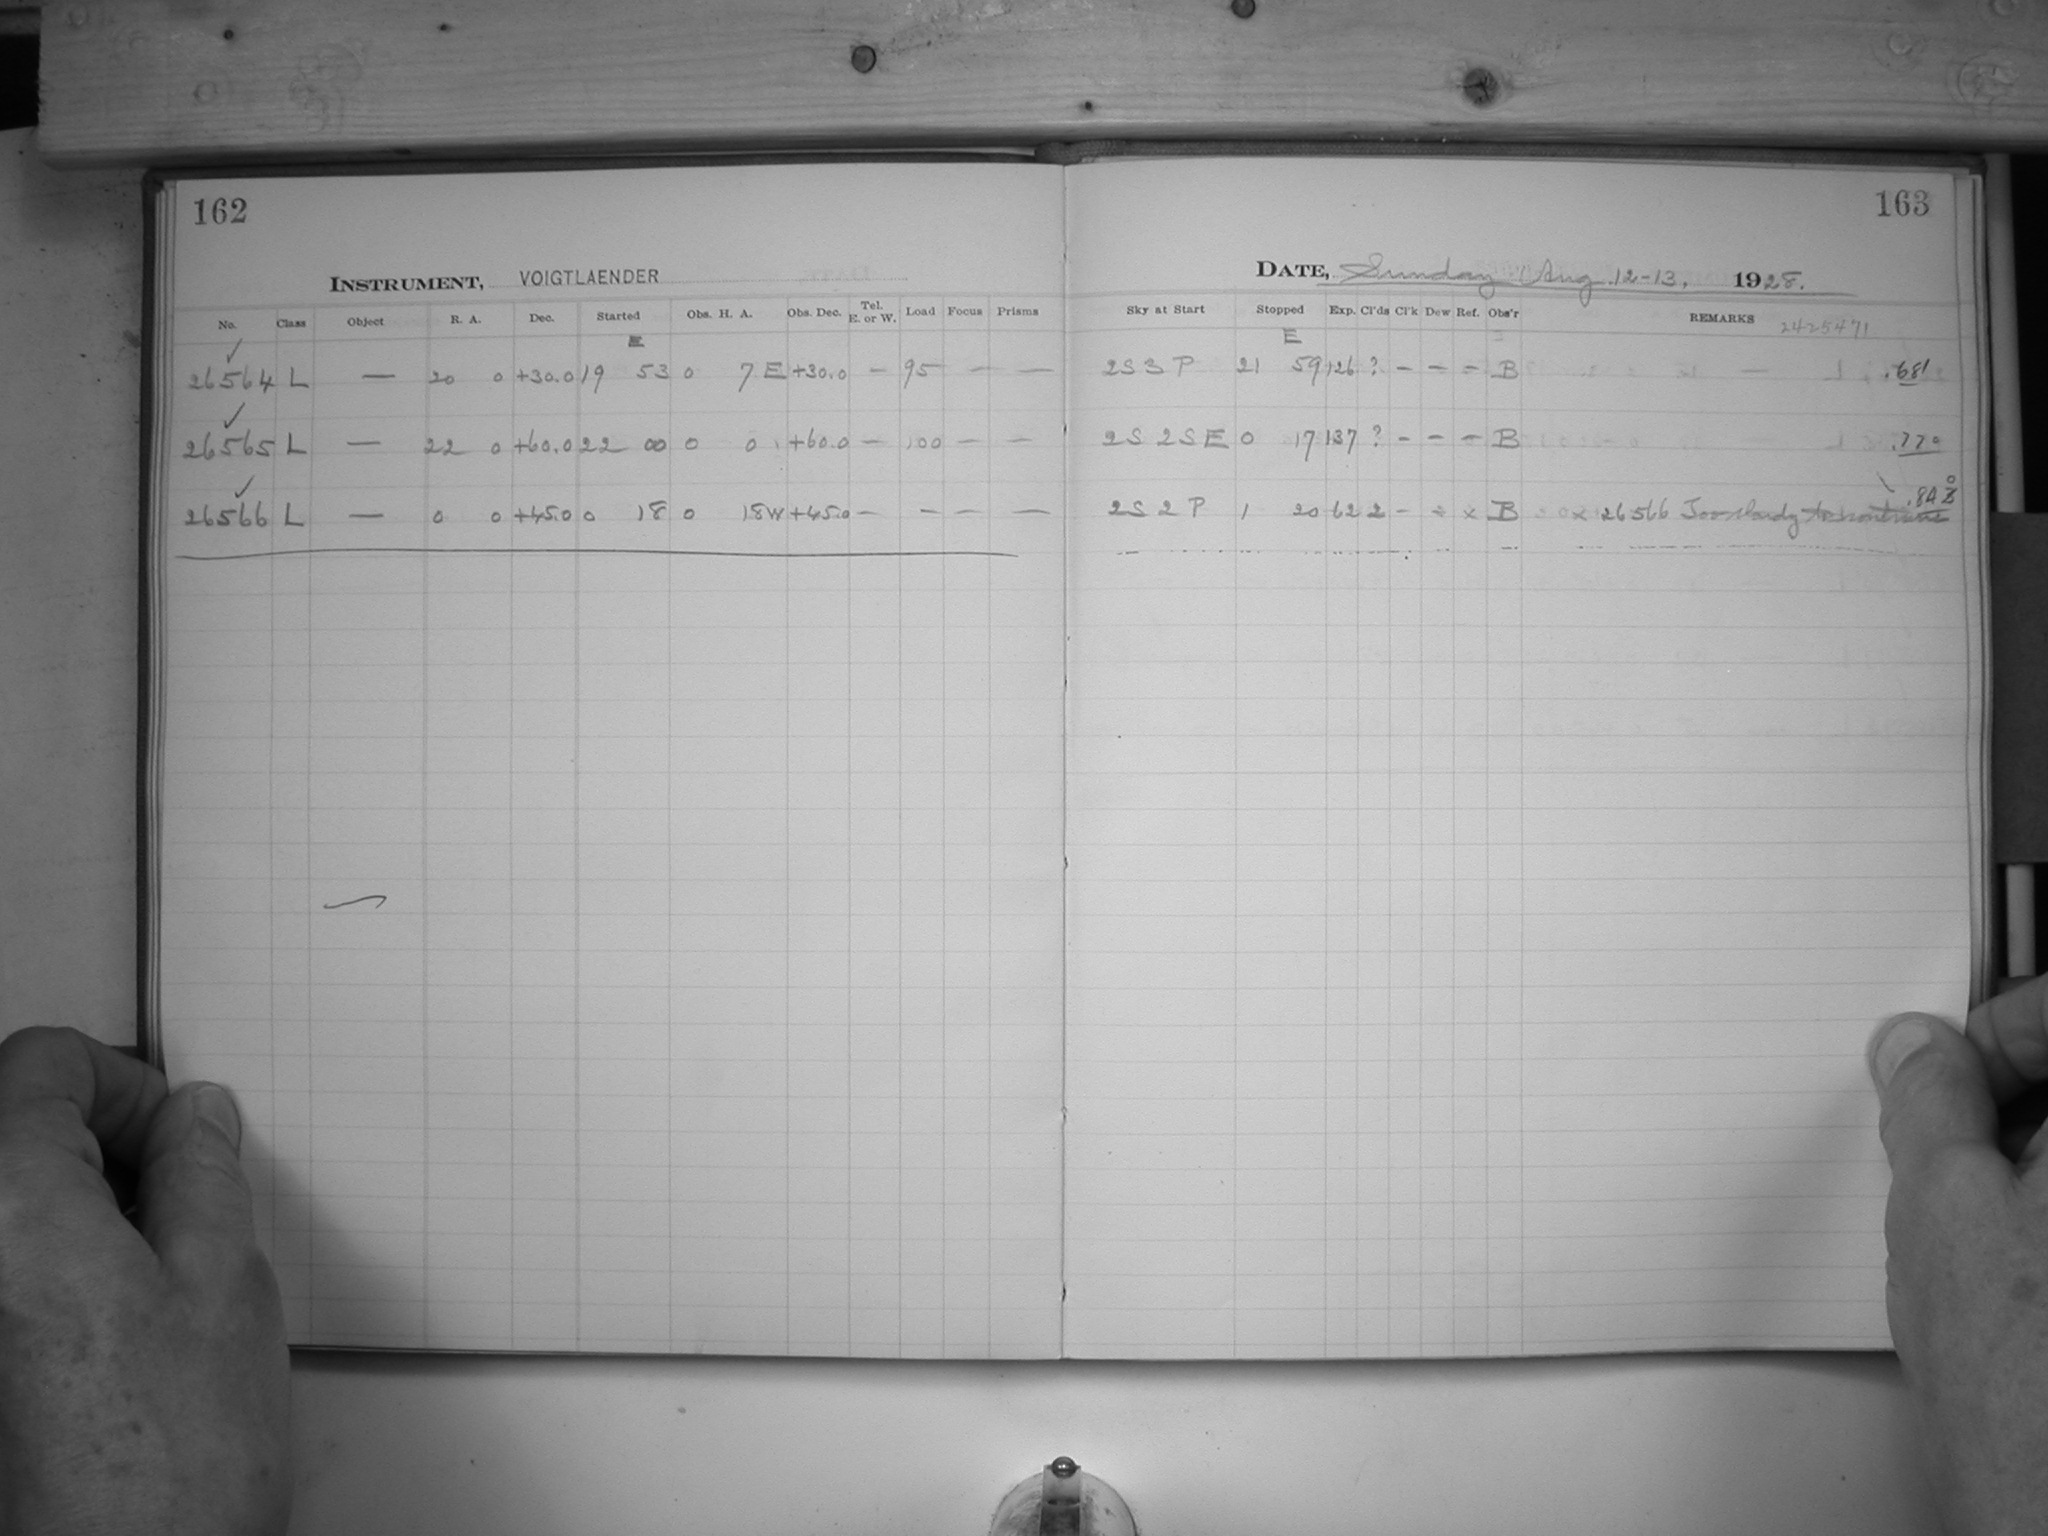 162
INSTRUMENT, VOIGTLAENDER
No. Class Object R. A. Dec. Started Obs. H. A. Obs. Dec. Tel. E. or W. Load Focus Prisms
E
26564 L — 20 0 +30.0 19 53 0 7 E +30.0 — 95 — —
26565 L — 22 0 +60.0 22 00 0 0 +60.0 — 100 — —
26566 L — 0 0 +45.0 0 18 0 18W +45.0 — — — —
163
DATE, Sunday Aug. 12-13, 1928.
Sky at Start Stopped Exp. Cl'ds Cl'k Dew Ref. Obs'r REMARKS 2425471
E
2S 3 P 21 59 126 ? – – – B .681
2S 2S E 0 17 137 ? – – – B .770
2S 2 P 1 20 62 2 – x B x 26566 Too cloudy to continue .84